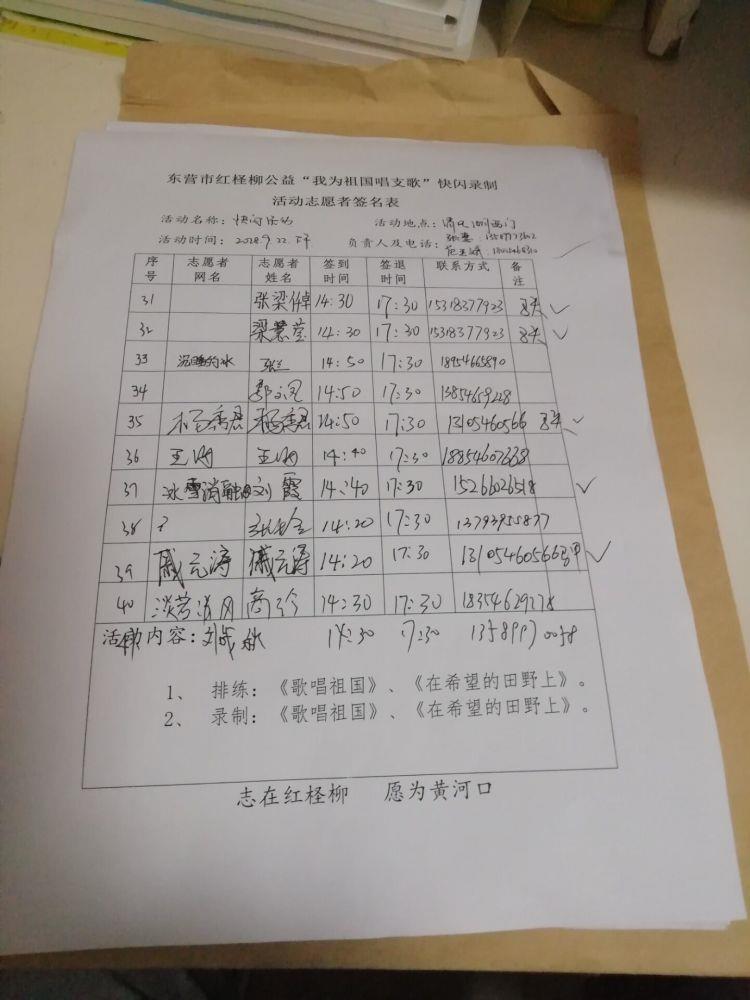 东营市红柽柳公益“我为祖国唱支歌”快闪录制
活动志愿者签名表
活动名称：快闪活动 活动地点：清风湖西门
活动时间：2018.9.22.下午 负责人及电话：
序号 志愿者网名 志愿者姓名 签到时间 签退时间 联系方式 备注
31 张梁倬 14:30 17:30 15318377923
32 梁慧莹 14:30 17:30 15318377923
33 沉睡的冰 张兰 14:50 17:30 18954665890
34 14:50 17:30 13854659228
35 杨秀君 杨秀君 14:50 17:30 13105460566
36 王 王 14:40 17:30 18854607668
37 冰雪消融 刘霞 14:40 17:30 15266026518
38 ? 14:20 17:30
39 戚元涛 戚元涛 14:20 17:30 13105460566
40 淡若清风 高玲 14:30 17:30 18354629278
活动内容：刘 14:30 17:30
1、 排练：《歌唱祖国》、《在希望的田野上》。
2、 录制：《歌唱祖国》、《在希望的田野上》。
志在红柽柳 愿为黄河口